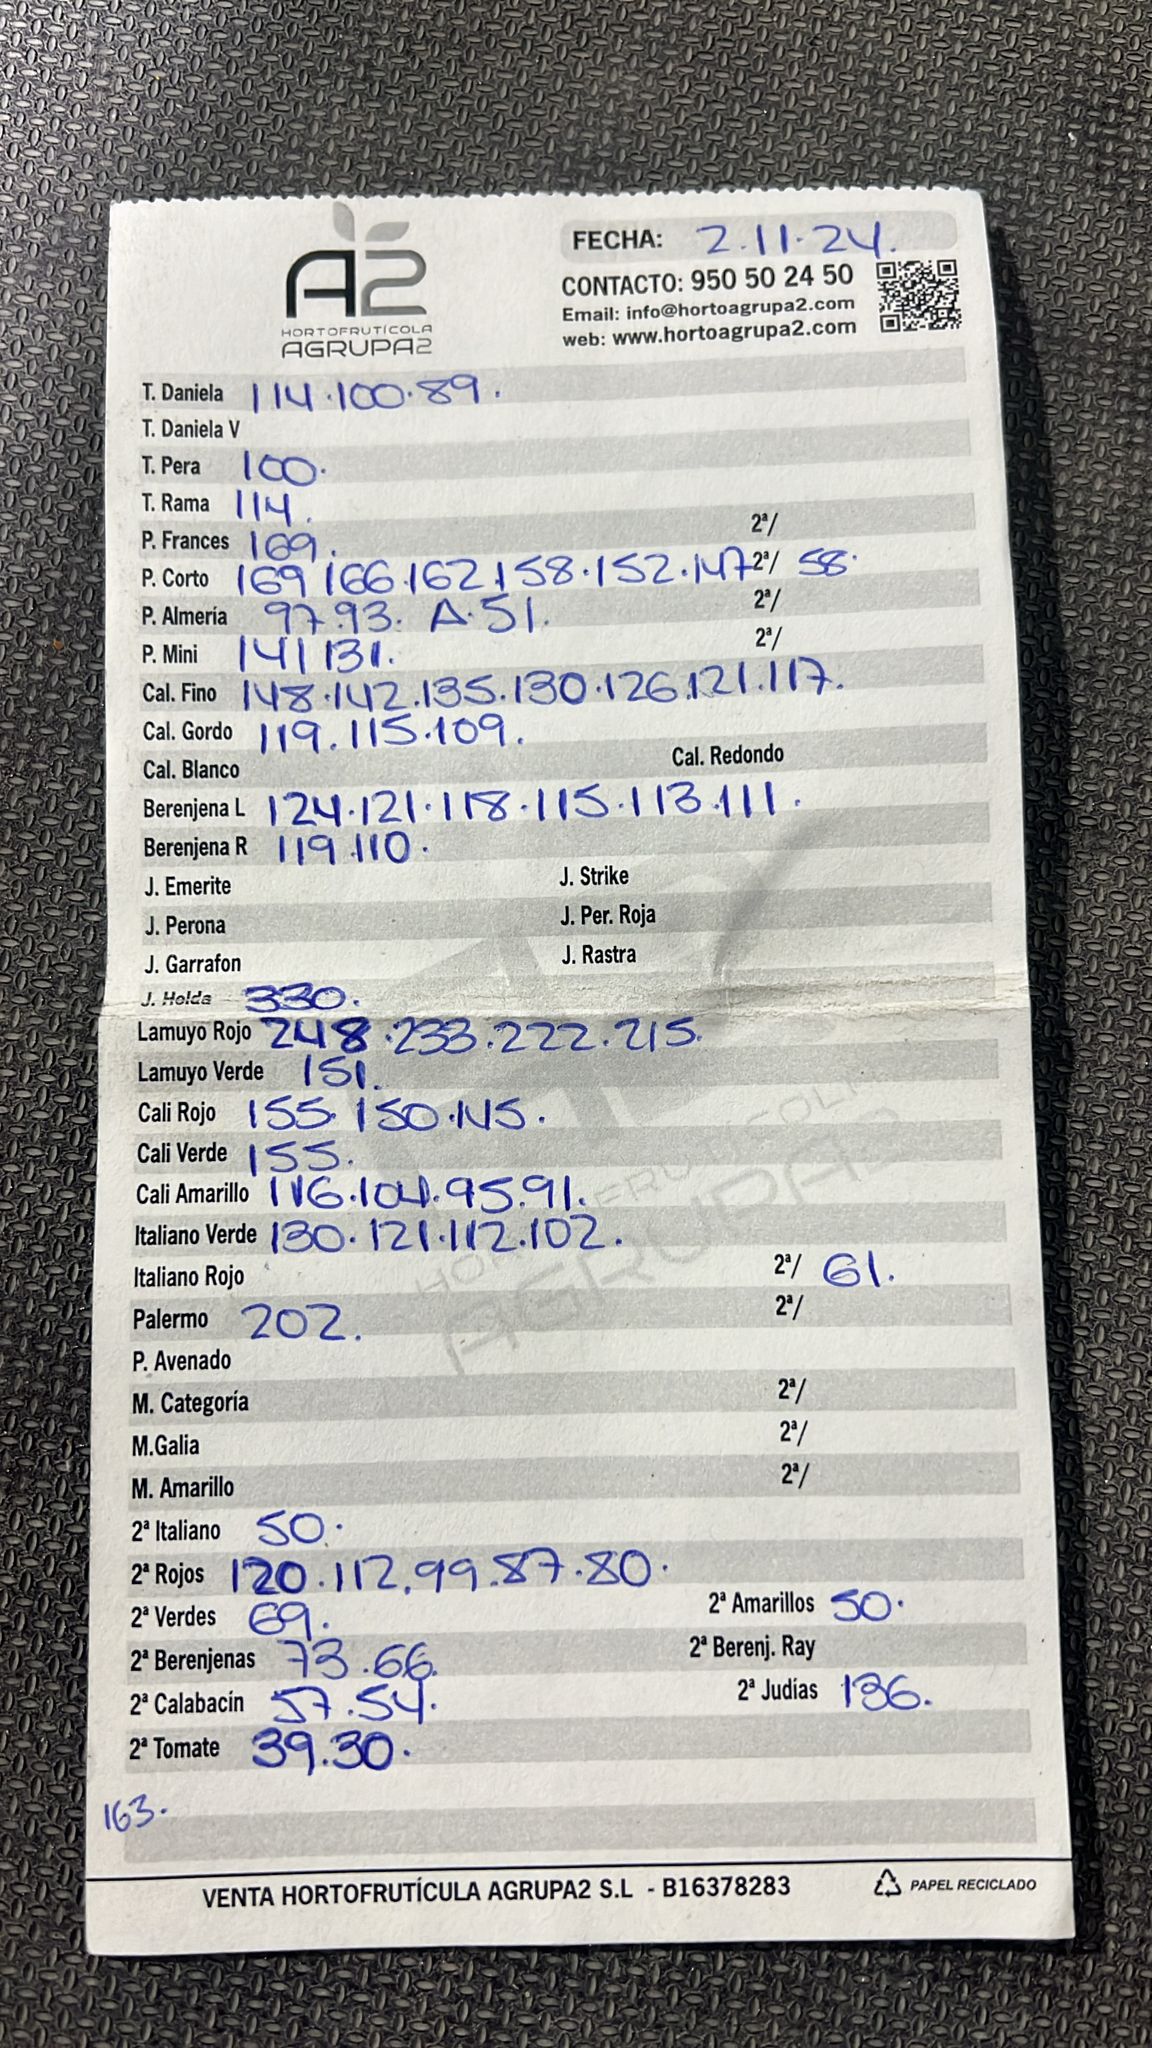 A2
HORTOFRUTÍCOLA
AGRUPA2
FECHA: 2.11.24.
CONTACTO: 950 50 24 50
Email: info@hortoagrupa2.com
web: www.hortoagrupa2.com
T. Daniela 114.100.89.
T. Daniela V
T. Pera 100.
T. Rama 114.
P. Frances 169. 2ª/
P. Corto 169 166.162.158.152.147 2ª/ 58.
P. Almería 97.93. A.51. 2ª/
P. Mini 141 131. 2ª/
Cal. Fino 148.142.135.130.126.121.117.
Cal. Gordo 119.115.109.
Cal. Blanco Cal. Redondo
Berenjena L 124.121.118.115.113.111.
Berenjena R 119.110.
J. Emerite J. Strike
J. Perona J. Per. Roja
J. Garrafon J. Rastra
J. Helda 330.
Lamuyo Rojo 248.233.222.215.
Lamuyo Verde 151.
Cali Rojo 155.150.145.
Cali Verde 155.
Cali Amarillo 116.104.95.91.
Italiano Verde 130.121.112.102.
Italiano Rojo 2ª/ 61.
Palermo 202. 2ª/
P. Avenado
M. Categoría 2ª/
M.Galia 2ª/
M. Amarillo 2ª/
2ª Italiano 50.
2ª Rojos 120.112.99.87.80.
2ª Verdes 69. 2ª Amarillos 50.
2ª Berenjenas 73.66. 2ª Berenj. Ray
2ª Calabacín 57.54. 2ª Judías 136.
2ª Tomate 39.30.
163.
VENTA HORTOFRUTÍCULA AGRUPA2 S.L - B16378283
PAPEL RECICLADO